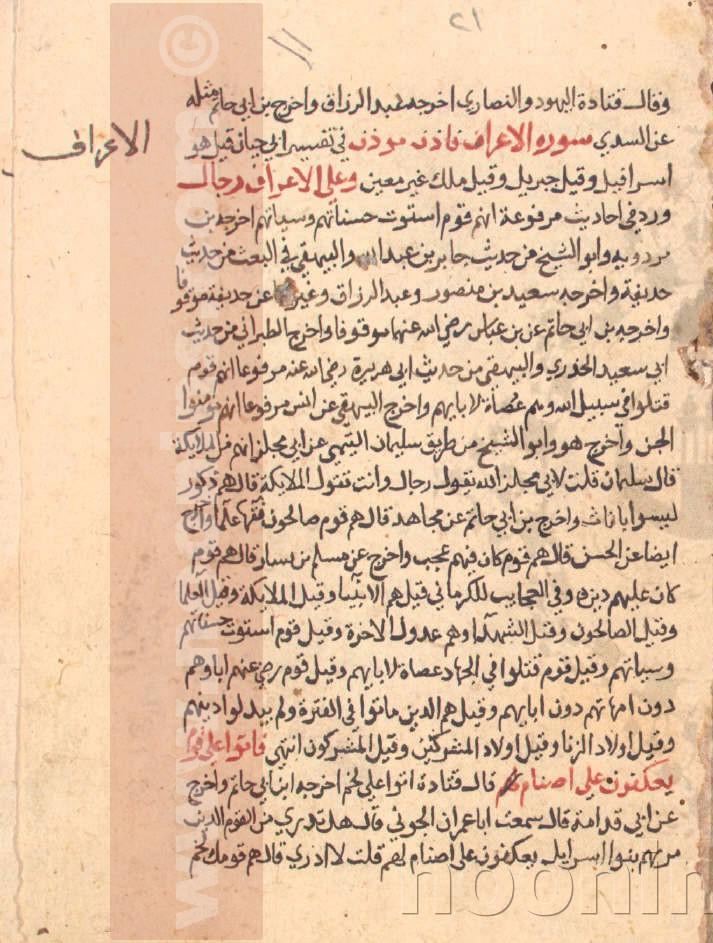 ٢١
وقال قتادة اليهود والنصاري اخرجه عبد الرزاق واخرج بن ابي حاتم مثله
عن السدي سورة الاعراف فاذن موذن في تفسير ابي حيان قيل هو
الاعراف
اسرافيل وقيل جبريل وقيل ملك غير معين وعلي الاعراف رجال
ورد في احاديث مرفوعة انهم قوم استوت حسناتهم وسياتهم اخرجه بن
مردويه وابو الشيخ من حديث جابر بن عبد الله والبيهقي في البعث من حديث
حذيفة واخرجه سعيد بن منصور وعبد الرزاق وغيرهما عن حذيفة موقوفا
واخرجه بن ابي حاتم عن بن عباس رضي الله عنهما موقوفا واخرج الطبراني من حديث
ابي سعيد الخدري والبيهقي من حديث ابي هريرة رضي الله عنه مرفوعا انهم قوم
قتلوا في سبيل الله وهم عصاة لابايهم واخرج البيهقي عن انس مرفوعا انهم مومنوا
الجن واخرج هو وابو الشيخ من طريق سليمان التيمي عن ابي مجلز انهم من الملايكة
قال سليمان قلت لابي مجلز الله يقول رجال وانت تقول الملايكة قال هم ذكور
ليسوا باناث واخرج بن ابي حاتم عن مجاهد قال هم قوم صالحون فقها علما واخرج
ايضا عن الحسن قال هم قوم كان فيهم عجب واخرج عن مسلم بن يسار قال هم قوم
كان عليهم دين وفي العجايب للكرماني قيل هم الانبيا وقيل الملايكة وقيل العلما
وقيل الصالحون وقيل الشهدا وهم عدول الاخرة وقيل قوم استوت حسناتهم
وسياتهم وقيل قوم قتلوا في الجهاد عصاة لابايهم وقيل قوم رضي عنهم اباوهم
دون امهاتهم دون ابايهم وقيل هم الذين ماتوا في الفترة ولم يبدلوا دينهم
وقيل اولاد الزنا وقيل اولاد المشركين وقيل المشركون انتهي فاتوا علي قوم
يعكفون علي اصنام لهم قال قتادة اتوا علي لخم اخرجه ابن ابي حاتم واخرج
عن ابي قدامة قال سمعت ابا عمران الجوني قال هل تدري من القوم الذين
مر بهم بنوا اسرايل يعكفون علي اصنام لهم قلت لا ادري قال هم قومك لخم
noonin